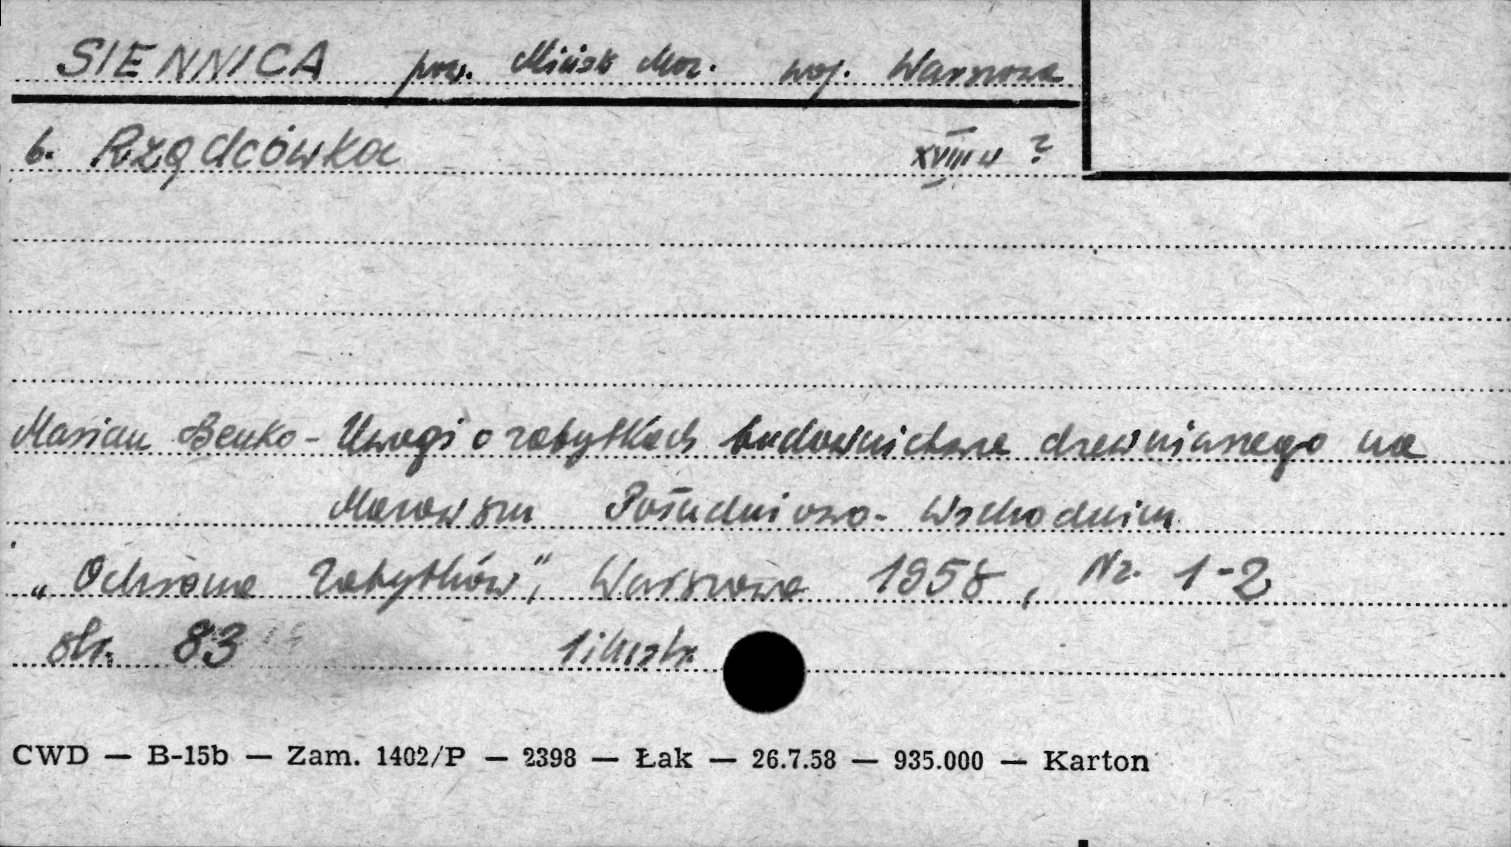 SIENNICA pow. Mińsk Maz. woj. Warszawa
b. Rządcówka XVIII w ?
Marian Benko - Uwagi o zabytkach budownictwa drewnianego na
Mazowszu Południowo - Wschodnim
„Ochrona Zabytków", Warszawa 1958, Nr. 1-2
str. 83 1 ilustr.
CWD — B-15b — Zam. 1402/P — 2398 — Łak — 26.7.58 — 935.000 — Karton